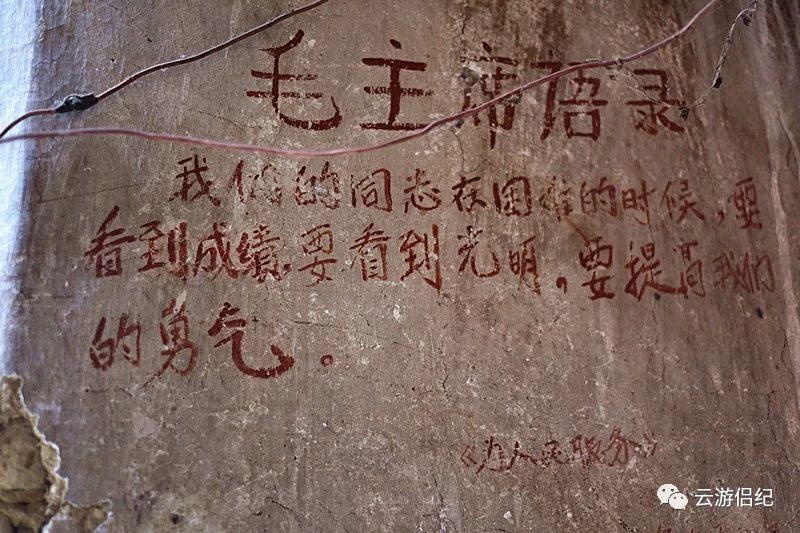 毛主席语录
我们的同志在困难的时候,要
看到成绩,要看到光明,要提高我们
的勇气。
《为人民服务》
云游侣纪